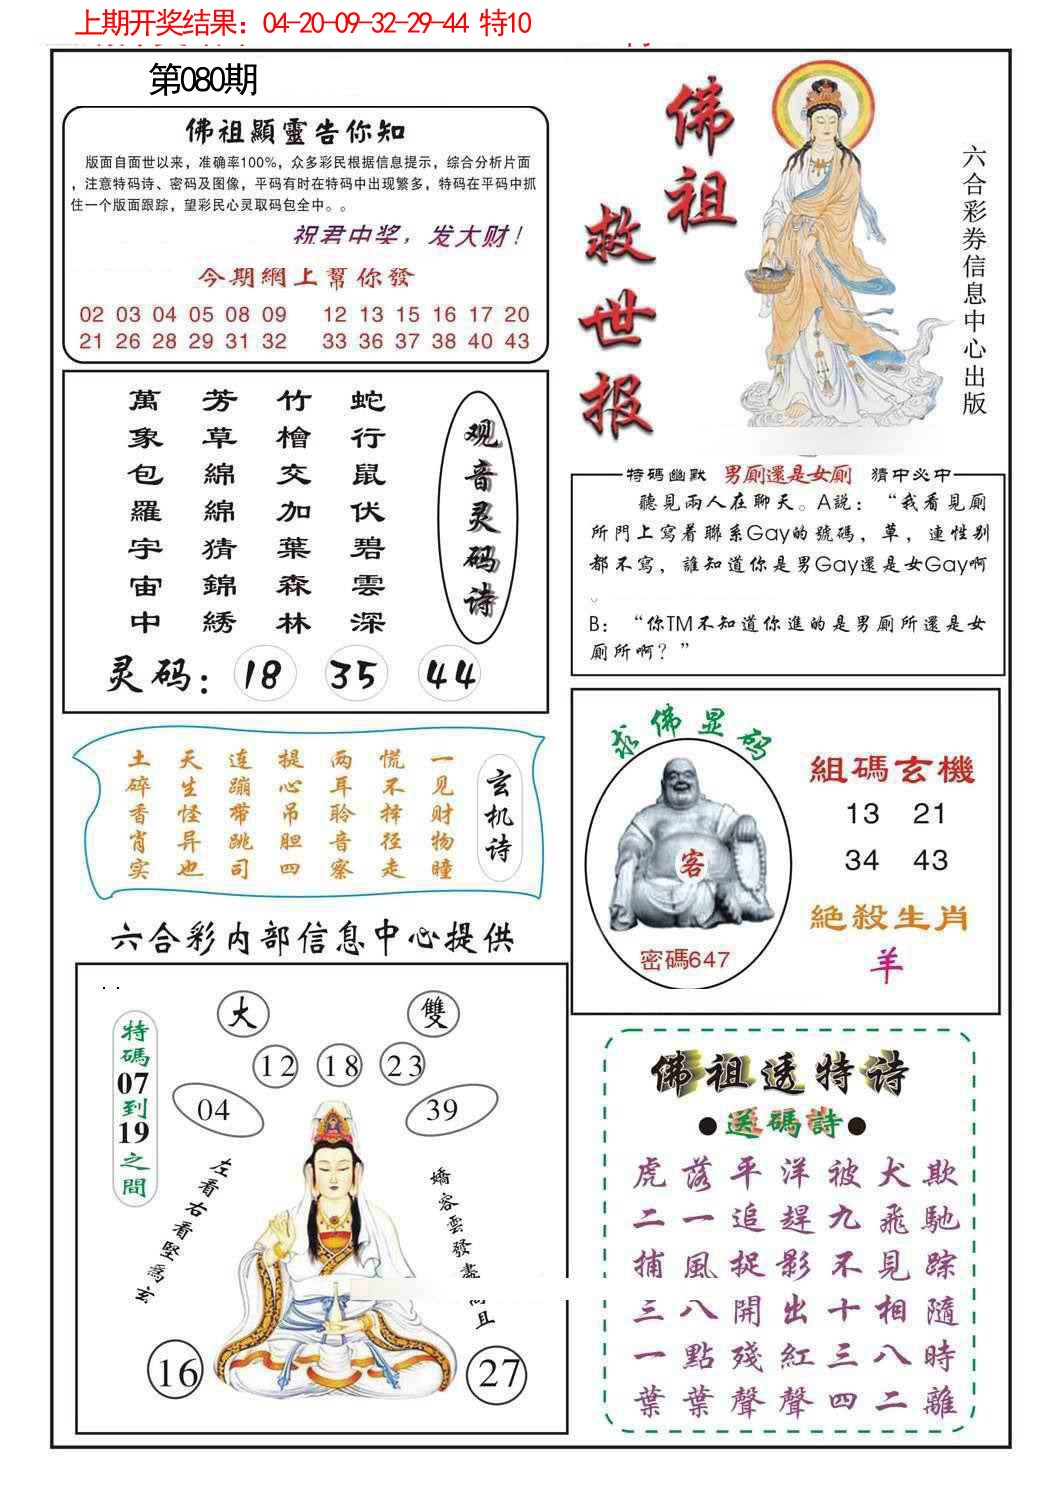 上期开奖结果：04-20-09-32-29-44 特10
第080期
佛祖顯靈告你知
版面自面世以来，准确率100%，众多彩民根据信息提示，综合分析片面
，注意特码诗、密码及图像，平码有时在特码中出现繁多，特码在平码中抓
住一个版面跟踪，望彩民心灵取码包全中。。
祝君中奖，发大财！
今期網上幫你發
02 03 04 05 08 09 12 13 15 16 17 20
21 26 28 29 31 32 33 36 37 38 40 43
佛祖
救世报
六合彩券信息中心出版
观音灵码诗
蛇行鼠伏碧雲深
竹檜交加葉森林
芳草綿綿猜錦綉
萬象包羅宇宙中
灵码：18 35 44
特碼幽默 男厕還是女厕 猜中必中
聽見兩人在聊天。A説：“我看見厕
所門上寫着聯系Gay的號碼，草，連性别
都不寫，誰知道你是男Gay還是女Gay啊
B：“你TM不知道你進的是男厕所還是女
厕所啊？”
玄机诗
一见财物瞳
慌不择径走
两耳聆音察
提心吊胆四
连蹦带跳司
天生怪异也
土碎香肖实
求佛显码
客
密碼647
組碼玄機
13 21
34 43
絶殺生肖
羊
六合彩内部信息中心提供
大
雙
12 18 23
04
39
特碼07到19之間
左看右看堅爲玄
嬌容雲發盡
且
16
27
佛祖透特诗
●送碼詩●
虎落平洋被犬欺
二一追趕九飛馳
捕風捉影不見踪
三八開出十相隨
一點殘紅三八時
葉葉聲聲四二離